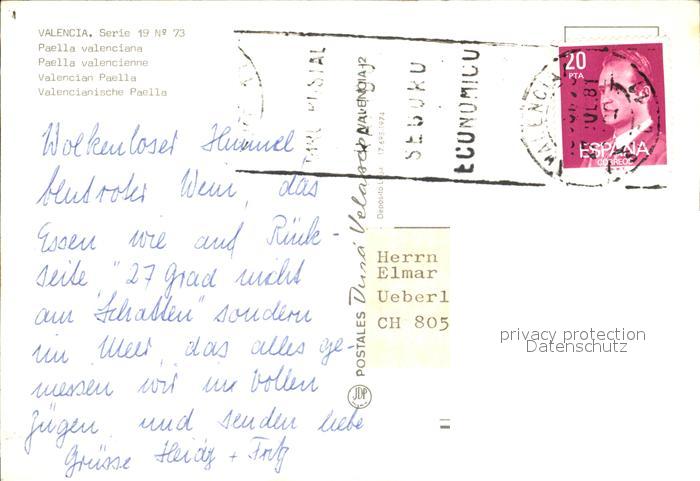 VALENCIA. Serie 19 Nº 73
Paella valenciana
Paella valencienne
Valencian Paella
Valencianische Paella
Wolkenloser Himmel
blutroter Wein, das
Essen wie auf Rück-
seite, "27 Grad nicht
am Schatten" sondern
im Meer, das alles ge-
niessen wir in vollen
Zügen und senden liebe
Grüsse Heidy + Fritz
POSTALES Durá Velasco
VALENCIA-12
SEGURO
ECONOMICO
VALENCIA
JUL.81
20
PTA
ESPAÑA
CORREOS
JDP
Herrn
Elmar
Ueberl
CH 805
privacy protection
Datenschutz